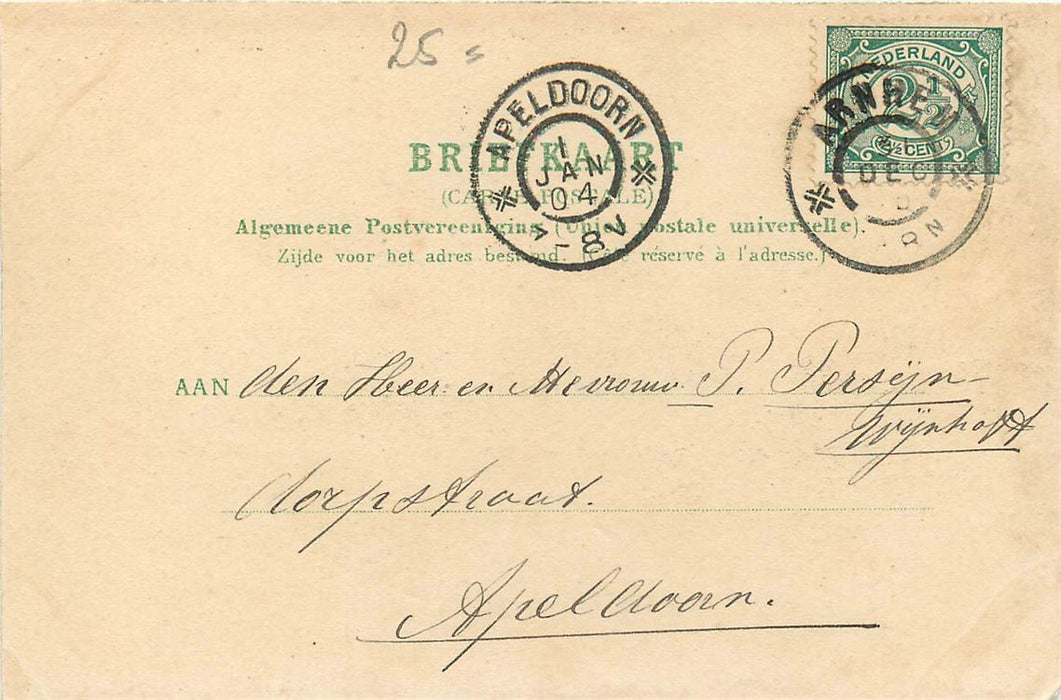 25=
NEDERLAND
2½
2½ CENT
ARNHEM
DEC
8 N
APELDOORN
1
JAN
04
7-8V
BRIEFKAART
(CARTE POSTALE)
Algemeene Postvereeniging (Union postale universelle).
Zijde voor het adres bestemd. (Côté réservé à l'adresse.)
AAN den Heer en Mevrouw P. Persijn-
Wijnhoff
dorpstraat.
Apeldoorn.